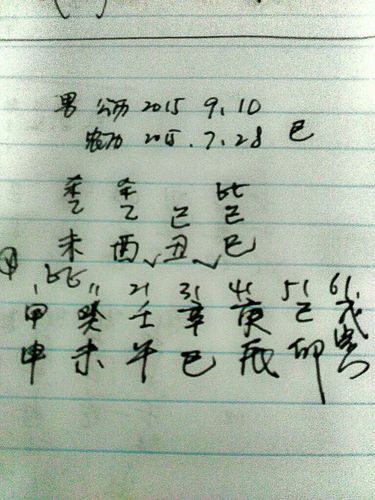 男 公历 2015 9.10
农历 2015.7.28 巳
杀 杀 比
乙 乙 己 己
未 酉 丑 巳
1 11 21 31 41 51 61
甲 癸 壬 辛 庚 己 戊
申 未 午 巳 辰 卯 寅